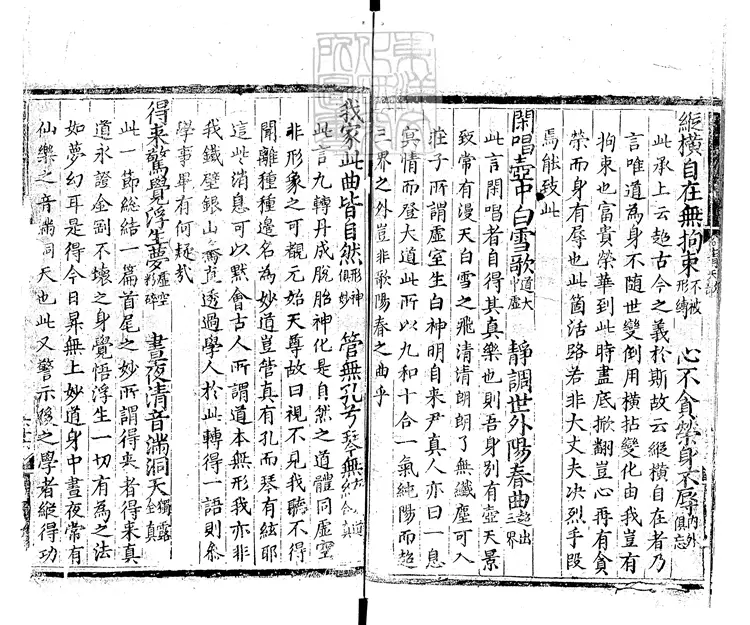 縱橫自在無拘束不被形縛 心不貪榮身不辱内外俱忘
此承上云超古今之義於斯故云縱橫自在者乃
言唯道為身不随世變倒用橫拈變化由我豈有
拘束也富貴榮華到此時盡底掀翻豈心再有貪
榮而身有辱也此箇活路若非大丈夫决烈手段
焉能致此
閑唱壺中白雪歌道大冲虛 靜調世外陽春曲超出三界
此言閑唱者自得其真樂也則吾身別有壺天景
致常有漫天白雪之飛清清朗朗了無纖塵可入
莊子所謂虛室生白神明自来尹真人亦曰一息
冥情而登大道此所以九和十合一氣純陽而超
三界之外豈非歌陽春之曲乎
我家此曲皆自然形神俱妙 管無孔兮琴無絃
此言九轉丹成脫胎神化是自然之道體同虛空
非形象之可觀元始天尊故曰視不見我聽不得
聞離種種邊名為妙道豈管真有孔而琴有絃耶
這些消息可以默會古人所謂道本無形我亦非
我鐵壁銀山直透過學人於此轉得一語則叅
學事畢有何疑㦲
得来驚覺浮生夢虛空粉碎 晝夜清音滿洞天獨露全真
此一節総結一篇首尾之妙所謂得来者得来真
道永證金剛不壞之身覺悟浮生一切有為之法
如夢幻耳是得今日昇無上妙道身中晝夜常有
仙樂之音滿洞天也此又警示後之學者縱得功